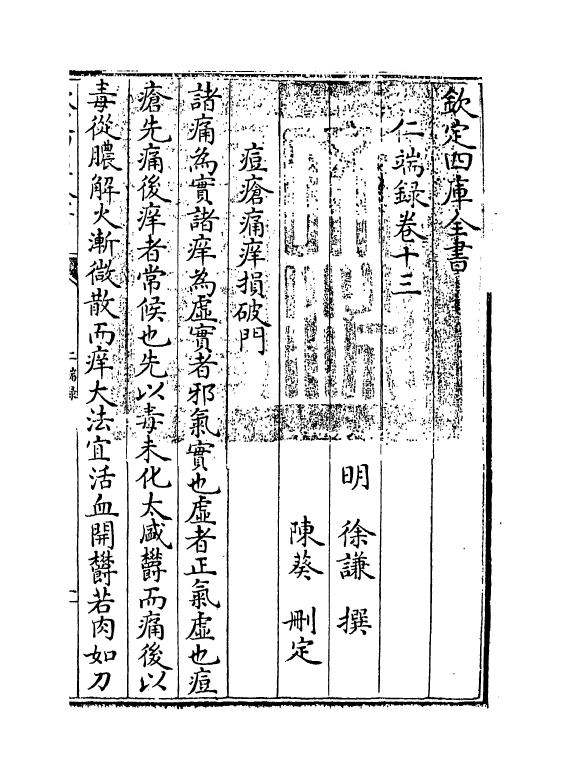 欽定四庫全書
仁端録卷十三
明 徐謙 撰
陳葵 刪定
痘瘡痛痒損破門
諸痛為實諸痒為虛實者邪氣實也虛者正氣虛也痘
瘡先痛後痒者常候也先以毒未化太盛欝而痛後以
毒從膿解火漸微散而痒大法宜活血開欝若肉如刀